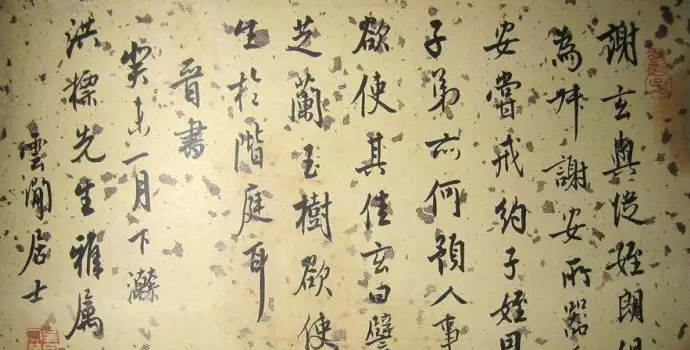 謝玄與從姪朗
為叔謝安所器
安嘗戒約子姪
子弟亦何預人事
欲使其佳玄曰譬
芝蘭玉樹欲使
生於階庭耳
晉書
癸未一月下澣
洪標先生雅屬
雲澗居士